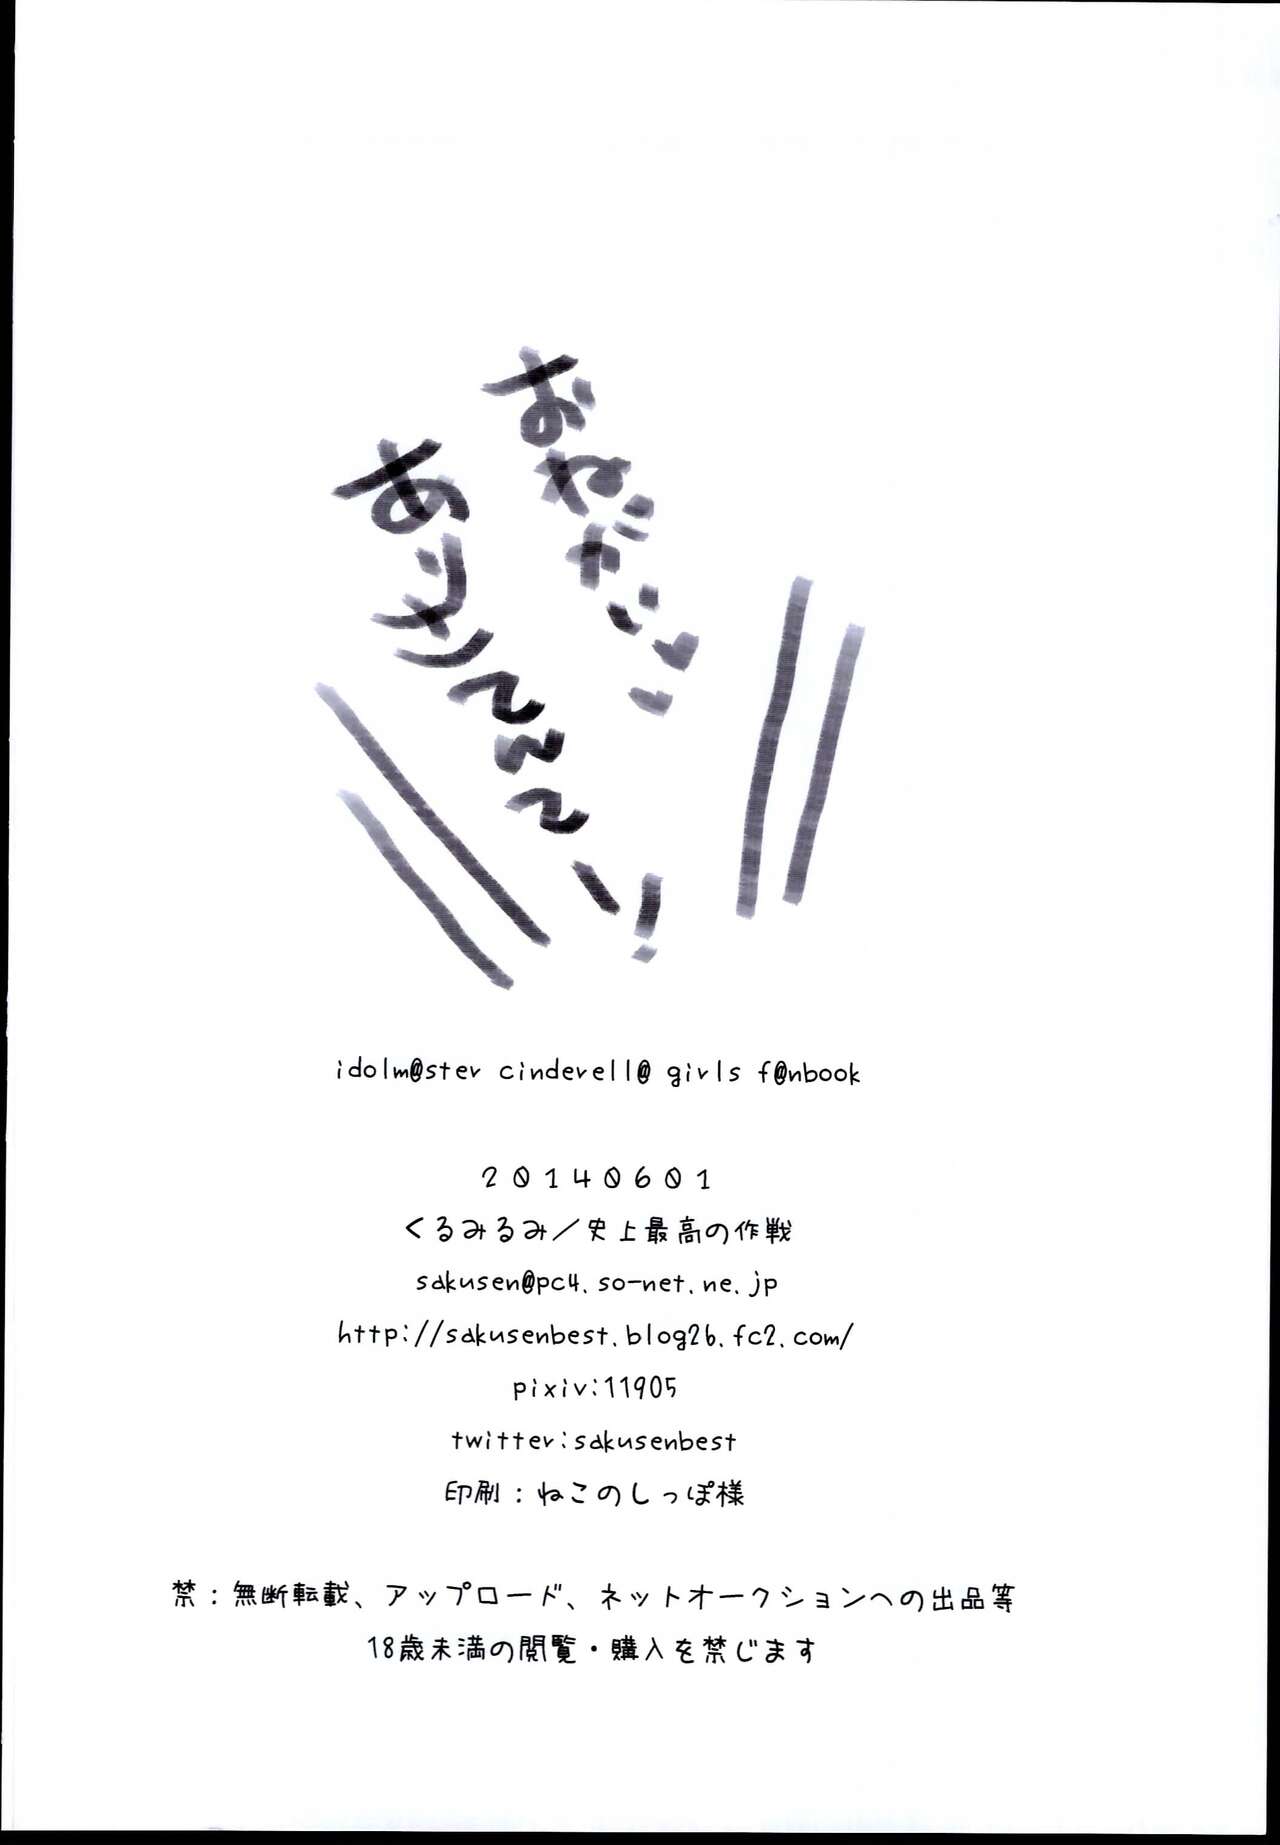 おねだり♥♥
ありすてんてー!
idolm@ster cinderell@ girls f@nbook
20140601
くるみるみ／史上最高の作戦
sakusen@pc4.so-net.ne.jp
http://sakusenbest.blog26.fc2.com/
pixiv:11905
twitter:sakusenbest
印刷：ねこのしっぽ様
禁：無断転載、アップロード、ネットオークションへの出品等
18歳未満の閲覧・購入を禁じます